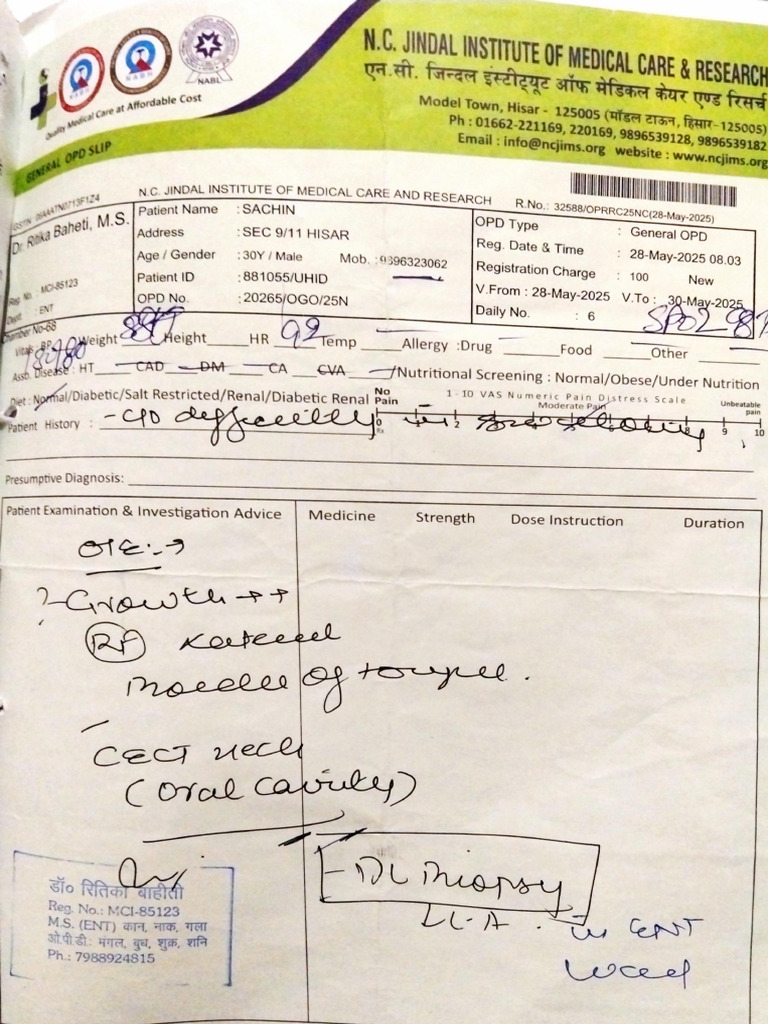 N.C. JINDAL INSTITUTE OF MEDICAL CARE & RESEARCH
एन.सी. जिन्दल इंस्टीट्यूट ऑफ मेडिकल केयर एण्ड रिसर्च
Model Town, Hisar - 125005 (मॉडल टाऊन, हिसार-125005)
Ph : 01662-221169, 220169, 9896539128, 9896539182
Email : info@ncjims.org website : www.ncjims.org
NABH NABH NABL
Quality Medical Care at Affordable Cost
GENERAL OPD SLIP
N.C. JINDAL INSTITUTE OF MEDICAL CARE AND RESEARCH R.No.: 32588/OPRRC25NC(28-May-2025)
Dr. Ritika Baheti, M.S.
Reg. No. : MCI-85123
Dept. : ENT
Chamber No-68
Patient Name : SACHIN
Address : SEC 9/11 HISAR
Age / Gender : 30Y / Male Mob. : 9896323062
Patient ID : 881055/UHID
OPD No. : 20265/OGO/25N
OPD Type : General OPD
Reg. Date & Time : 28-May-2025 08.03
Registration Charge : 100 New
V.From : 28-May-2025 V.To : 30-May-2025
Daily No. : 6 SPO2 98%
Vitals: BP Weight Height HR 92 Temp Allergy :Drug Food Other
Asso. Disease : HT CAD DM CA CVA /Nutritional Screening : Normal/Obese/Under Nutrition
Diet : Normal/Diabetic/Salt Restricted/Renal/Diabetic Renal No Pain 1 - 10 VAS Numeric Pain Distress Scale Moderate Pain Unbeatable pain
0 1 2 8 9 10
Patient History : - C/O difficulty in swallowing
Presumptive Diagnosis:
Patient Examination & Investigation Advice Medicine Strength Dose Instruction Duration
O/E :- →
?- Growth ++
Rt lateral
Border of tongue.
- CECT neck
(Oral Cavity)
- DL Biopsy
L.A. in ENT
ward
डॉ० रितिका बाहीती
Reg. No.: MCI-85123
M.S. (ENT) कान, नाक, गला
ओ.पी.डी.: मंगल, बुध, शुक्र, शनि
Ph.: 7988924815